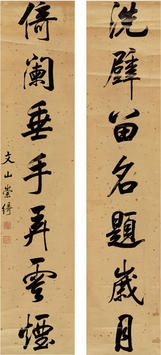 洗壁留名題歲月
倚闌垂手弄雲煙
文山崇綺